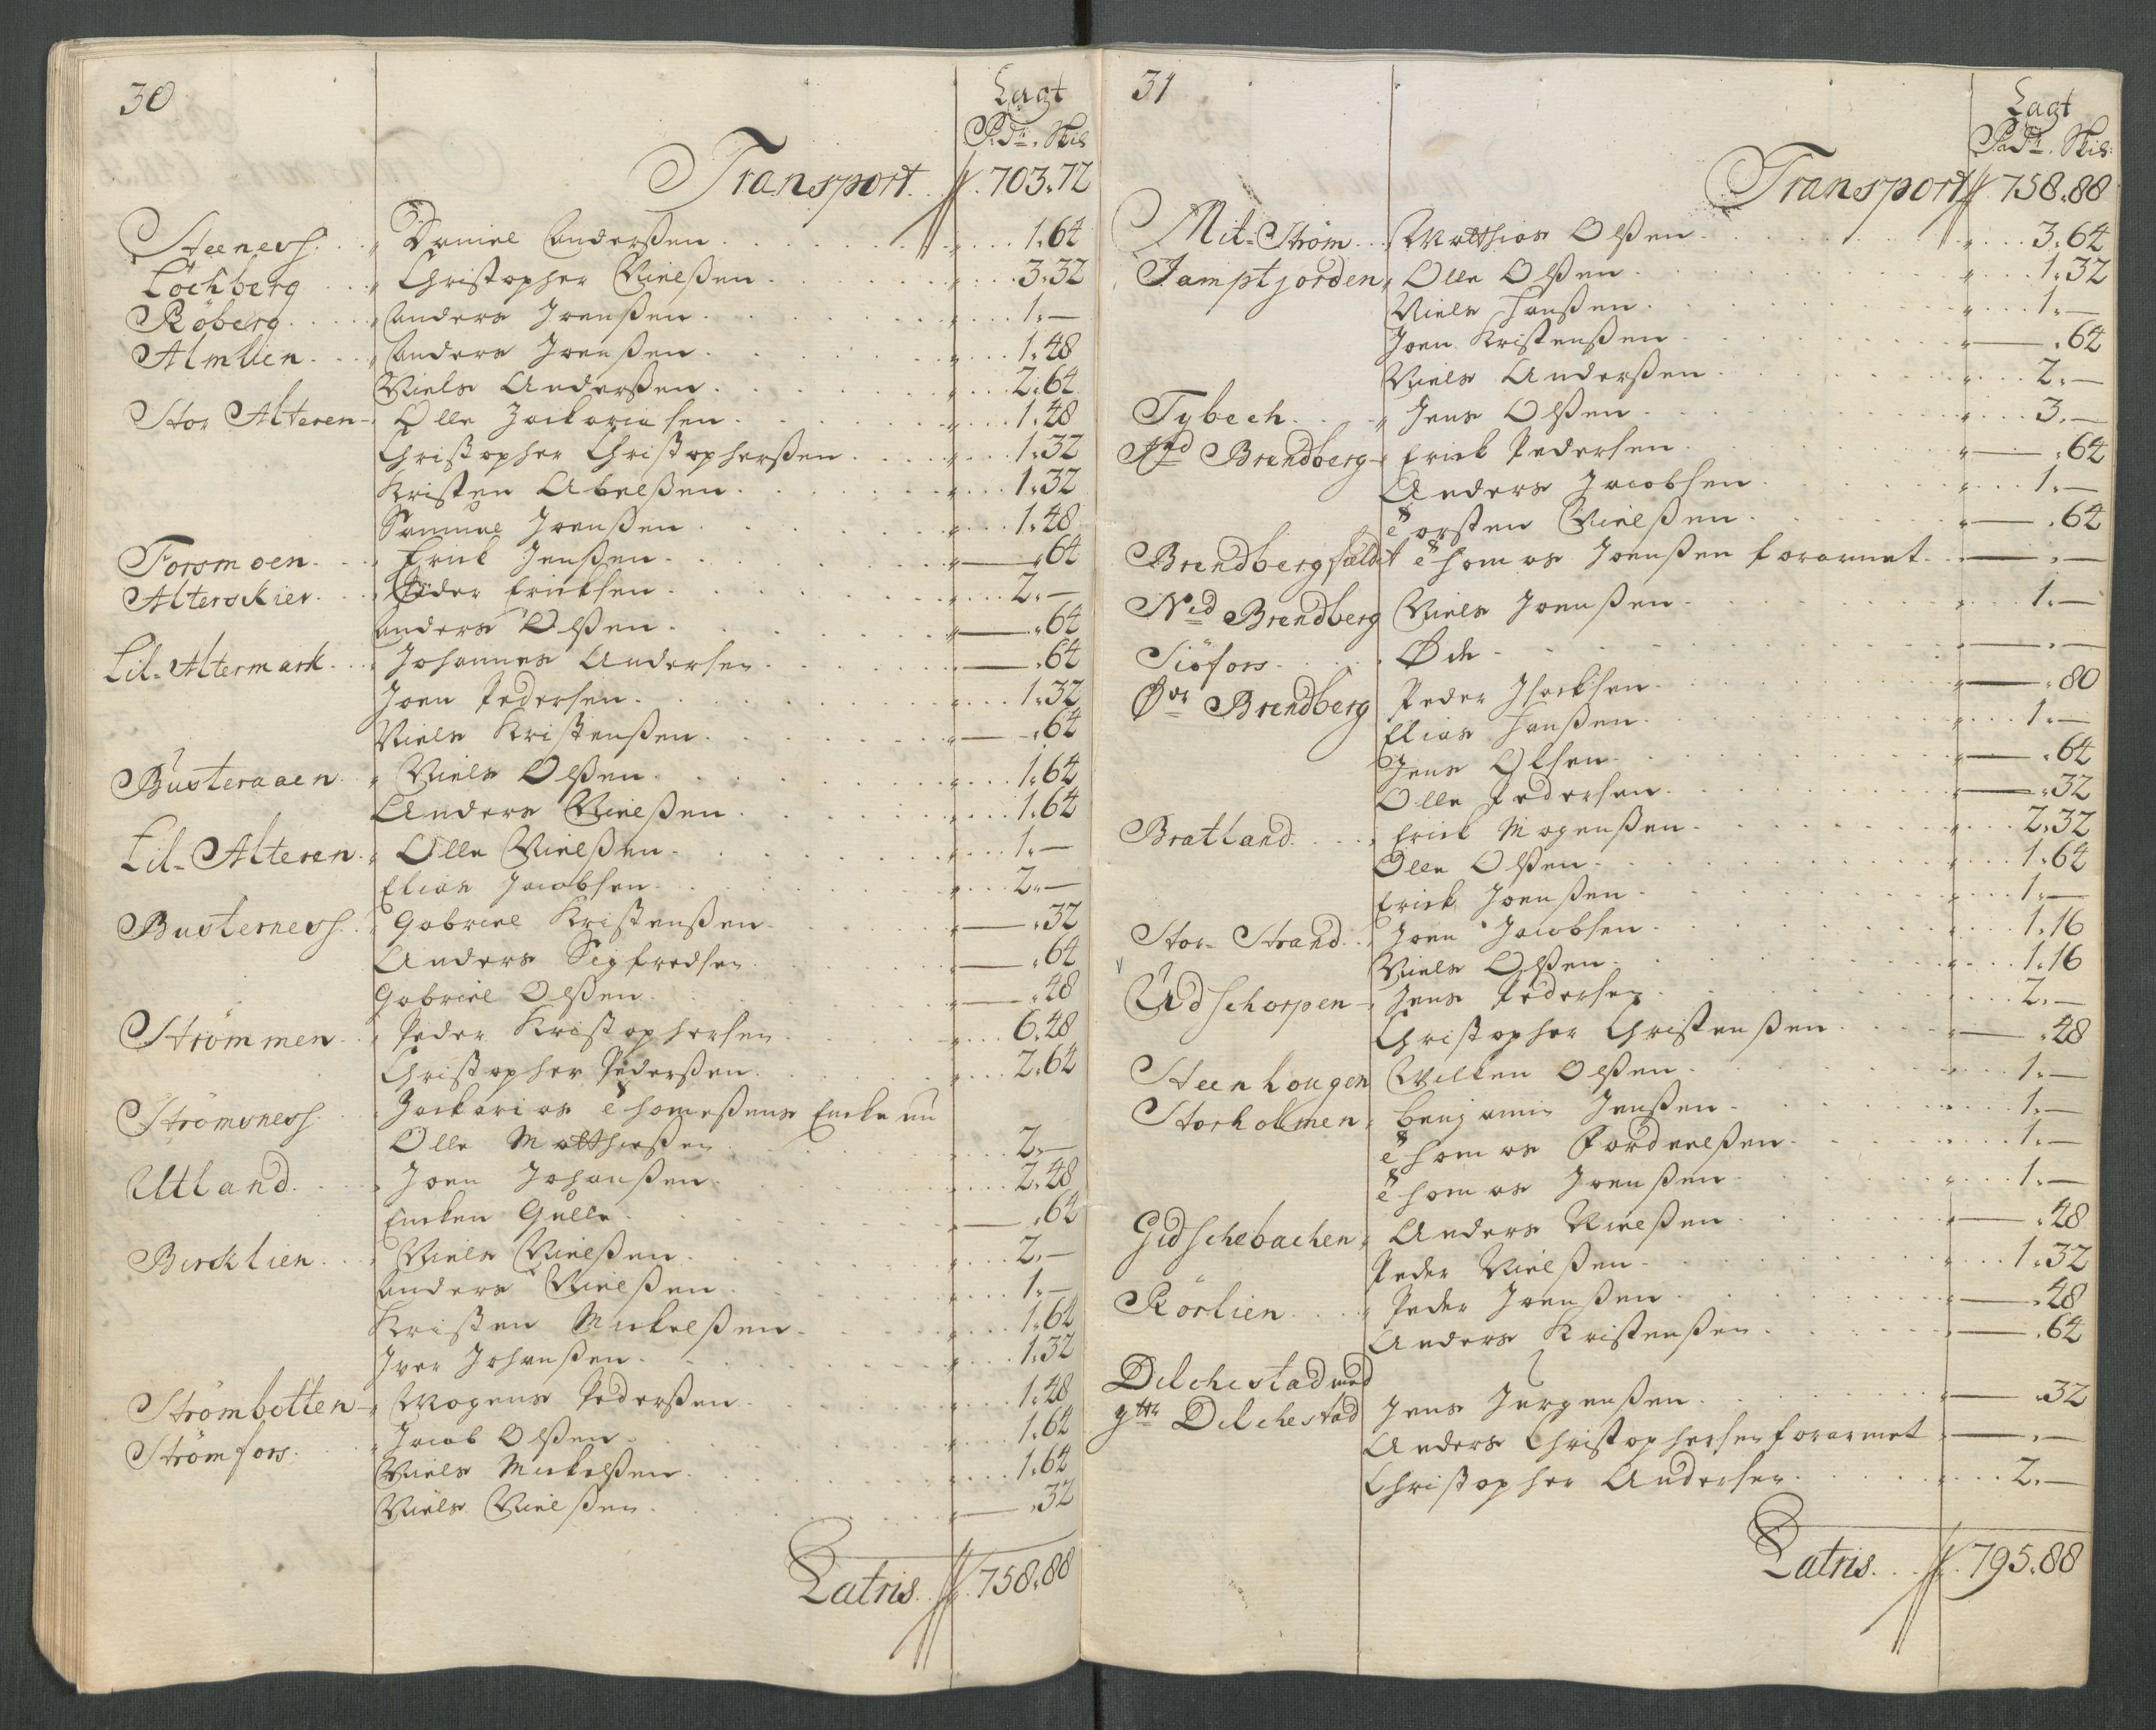 30
Lagt
Rdr. Skil
Transport. 703. 72
Steeness. Daniel Anderßen 1. 64
Löchberg Christopher Nielßen 3. 32
Röberg Anders Joenßen 1. —
Almlien Anders Joenßen 1. 48
Niels Anderßen 2. 64
Stor Alteren Olle Zackariasen 1. 48
Christopher Christopherßen 1. 32
Kristen Abelßen 1. 32
Samuel Joenßen 1. 48
Forsmoen Erick Jenßen — . 64
Alterskier Peder Ericksen 2. —
Anders Olßen — . 64
Lil-Altermark Johannes Andersen — . 64
Joen Pedersen 1. 32
Niels Kristenßen — . 64
Busteraaen Niels Olßen 1. 64
Anders Nielßen 1. 64
Lil-Alteren Olle Nielßen 1. —
Elias Jacobsen 2. —
Busterness. Gabriel Kristenßen — . 32
Anders Sigfredsen — . 64
Gabriel Olßen — . 48
Strömmen Peder Kristophersen 6. 48
Christopher Pederßen 2. 64
Strömsness. Zackarias Thomeßens Encke nu
Olle Matthießen 2. —
Utland Joen Johanßen 2. 48
Encken Gulle — . 64
Bircklien Niels Nielßen 2. —
Anders Nielßen 1. —
Kristen Mickelßen 1. 64
Iver Johanßen 1. 32
Strömbotten Mogens Pederßen 1. 48
Strömfors. Jacob Olßen 1. 64
Niels Mickelßen 1. 64
Niels Nielßen — . 32
Latris 758. 88
31
Lagt
Rdr. Skil:
Transport 758. 88
Mit-Ström Matthias Olßen 3. 64
Jamptjorden Olle Olßen 1. 32
Niels Hanßen 1. —
Joen Kristenßen — . 64
Niels Anderßen 2. —
Tybech Jens Olßen 3. —
Brendberg Erick Pedersen — . 64
Anders Jacobsen 1. —
Torsten Nielßen — . 64
Brendbergsaldt Thomas Joenßen forarmet — . —
Ned Brendberg Niels Joenßen 1. —
Siöfors Øde — . —
Øvr Brendberg Peder Isacksen — . 80
Elias Hanßen 1. —
Jens Olsen — . 64
Olle Pedersen — . 32
Bratland Erick Mogenßen 2. 32
Olle Olßen 1. 64
Erick Joenßen 1. —
Stor-Strand Joen Jacobsen 1. 16
Niels Olßen 1. 16
Udschorpen Jens Pedersen 2. —
Christopher Christenßen — . 48
Steenhougen Willken Olßen 1. —
Storholmen Benjamin Jenßen 1. —
Thomas Fordeelßen 1. —
Thomas Joenßen 1. —
Gidschebachen Anders Nielßen — . 48
Peder Nielßen 1. 32
Rörlien Peder Joenßen — . 48
Anders Kristenßen — . 64
Dilchestad med
Dilchestad Jens Jurgenßen — . 32
Anders Christophersen forarmet — . —
Christopher Andersen 2. —
Latris 795. 88